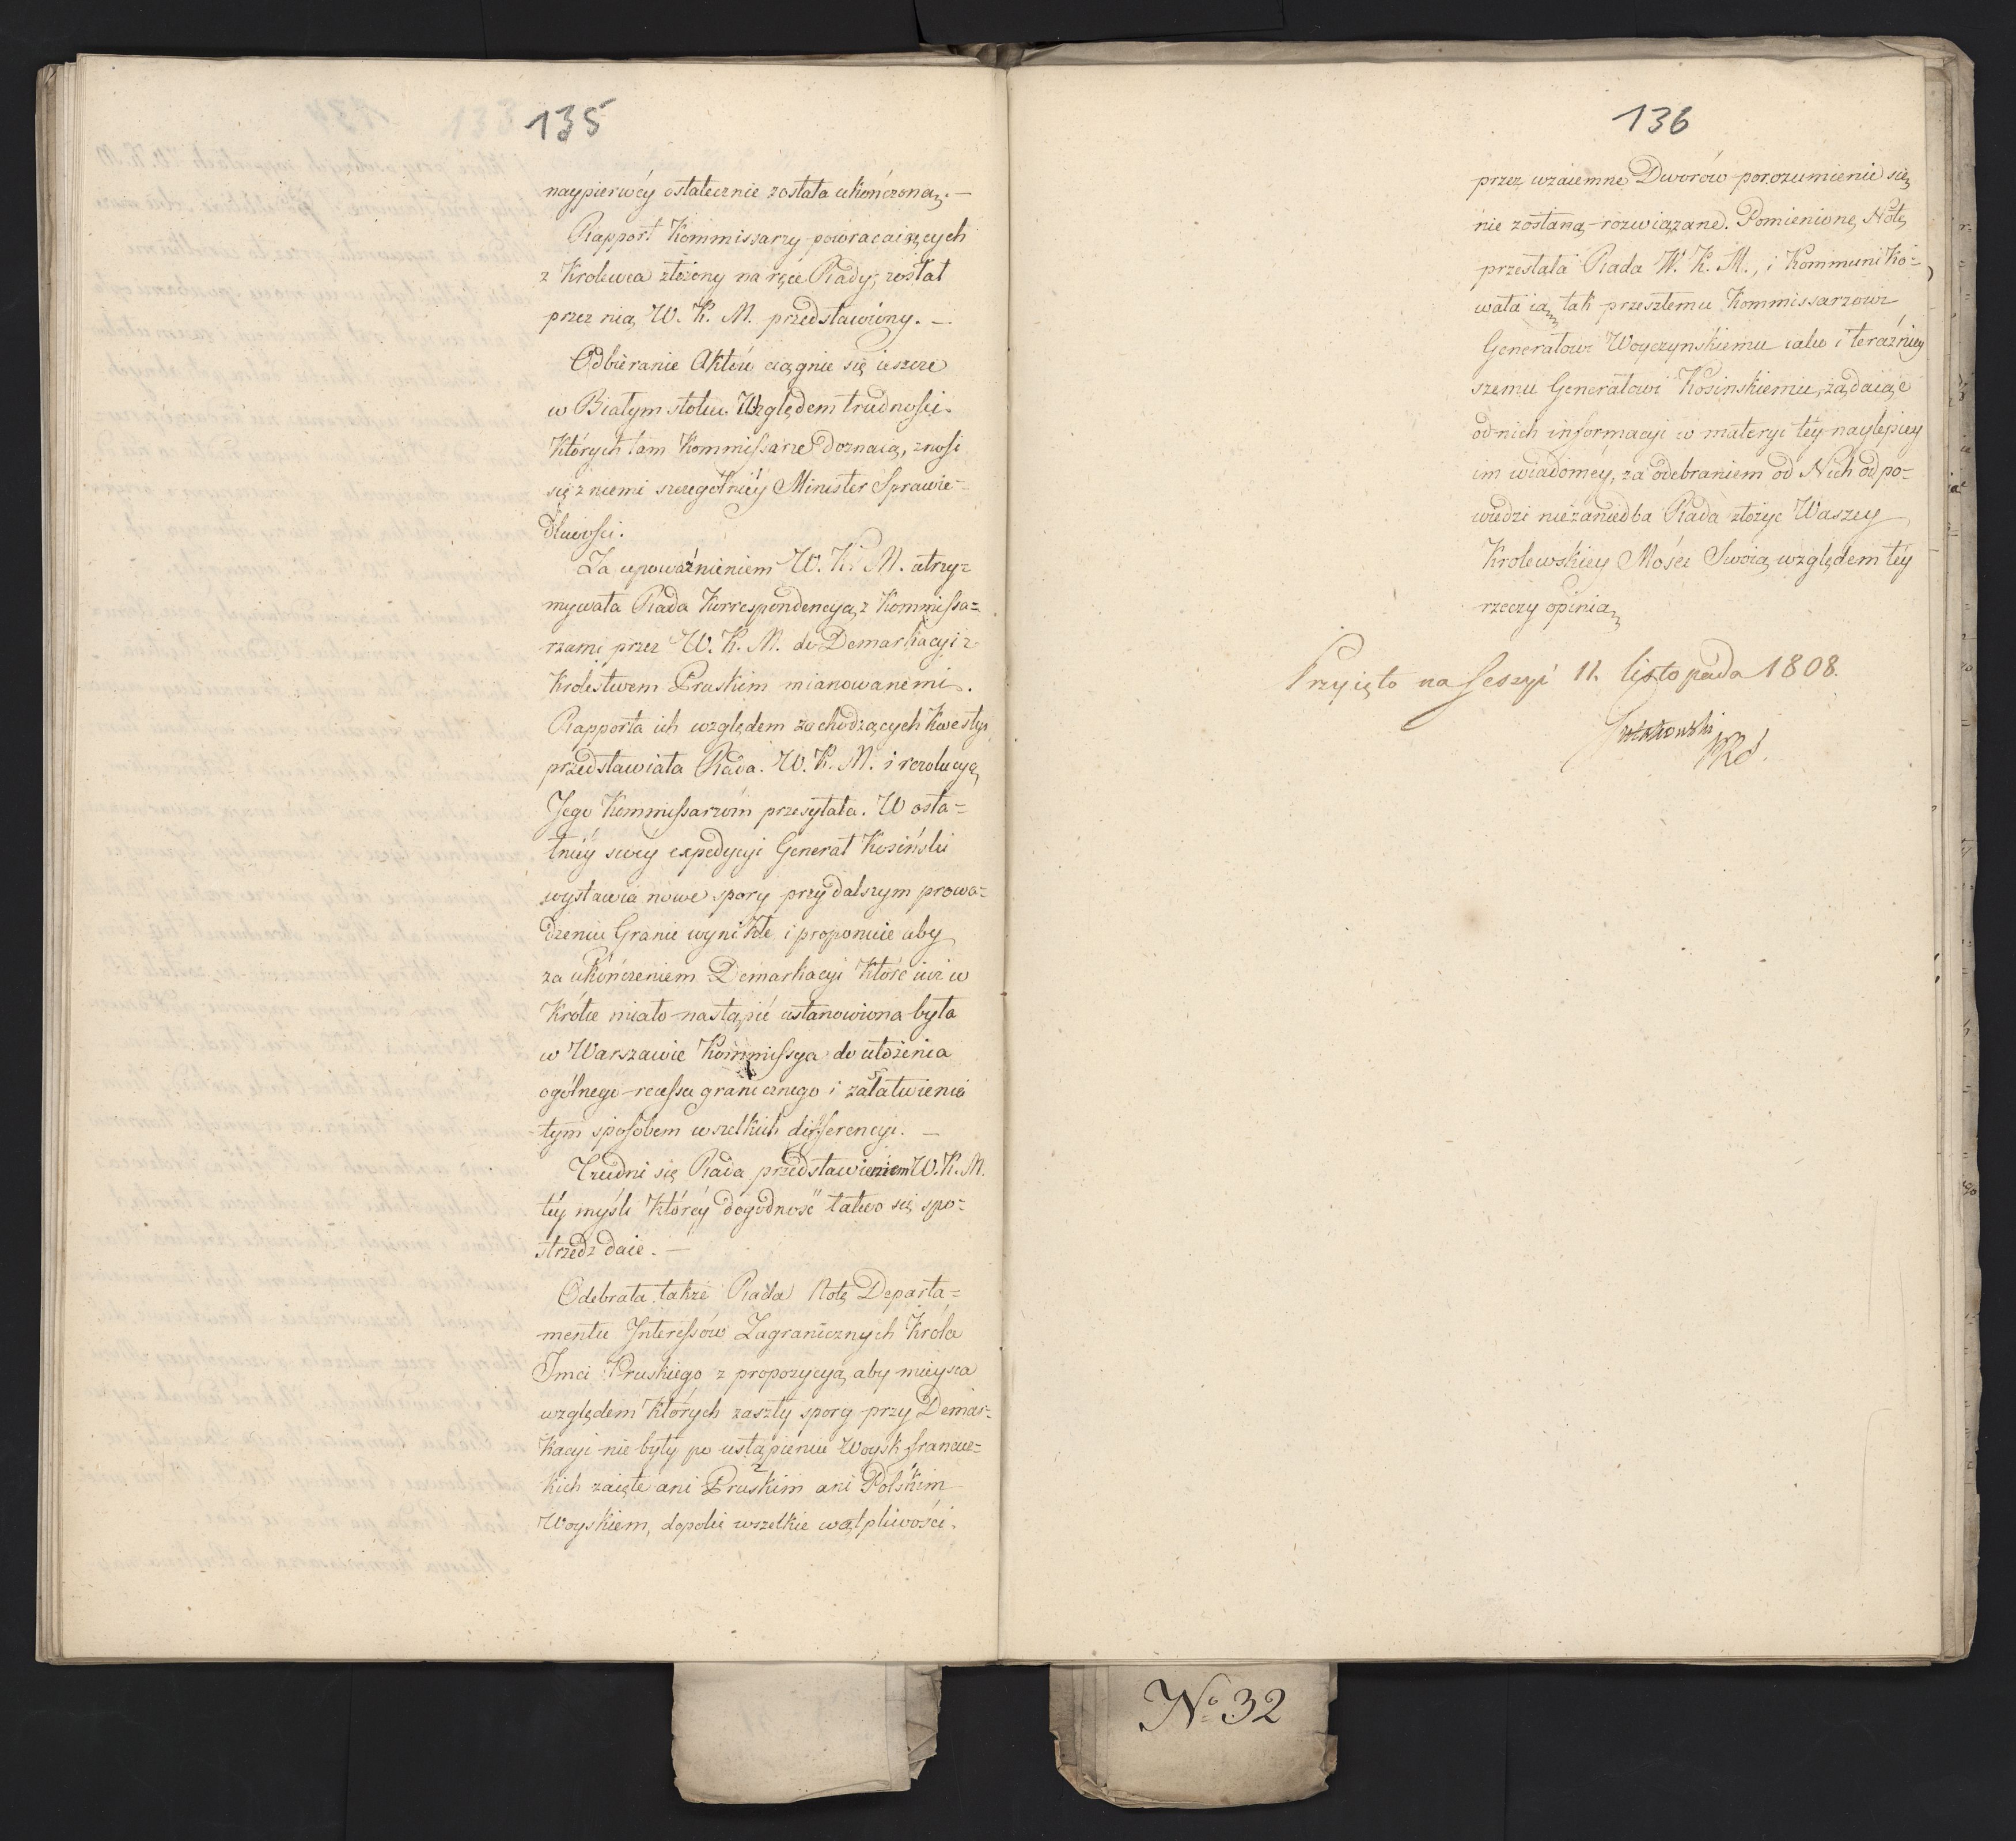 135
naypierwéy ostatecznie została ukończoną. —
Rapport Kommissarzy powracaiących
z Krolewca złożony na ręce Rady, został
przez nią W. K. M. przedstawiony. —
Odbieranie Aktów ciągnie się ieszcze
w Białymstoku. Względem trudności
których tam Kommissarze doznaią, znosi
się z niemi szczegolniéy Minister Sprawie=
dliwości.
Za upoważnieniem W. K. M. utrzy=
mywała Rada Korrespondencyą z Kommissa=
rzami przez W. K. M. do Demarkacyi z
Królestwem Pruskim mianowanemi.
Rapporta ich względem zachodzących kwestyi
przedstawiała Rada W. K. M. i rezolucye
Jego Kommissarzom przesyłała. W osta=
tniéy swéy expedycyi Generał Kosiński
wystawia nowe spory przy dalszym prowa=
dzeniu Granic wynikłe i proponuie aby
za ukończeniem Demarkacyi które iuż w
krótce miało nastąpić ustanowiona była
w Warszawie Kommissya do ułożenia
ogólnego recessu granicznego i załatwienia
tym sposobem wszelkich differencyi. —
Trudni się Rada przedstawieniem W. K. M.
téy myśli któréy dogodność łatwo się spo=
strzedz daie. —
Odebrała także Rada Notę Departa=
mentu Interessów Zagranicznych Króla
Jmci Pruskiego z propozycyą, aby mieysca
względem których zaszły spory przy Demar=
kacyi nie były po ustąpieniu Woysk francuz=
kich zaięte ani Pruskim ani Polskim
Woyskiem, dopoki wszelkie wątpliwości
136
przez wzaiemne Dworów porozumienie się
nie zostaną rozwiązane. Pomienioną Notę
przesłała Rada W. K. M., i kommuniko=
wała ią tak przeszłemu Kommissarzowi
Generałowi Woyczynskiemu iako i teraźniey
szemu Generałowi Kosinskiemu, żądaiąc
od nich informacyi w materyi téy naylepiey
im wiadoméy, za odebraniem od Nich odpo=
wiedzi niezaniedba Rada złożyć Waszey
Krolewskiey Mości Swoią względem téy
rzeczy opinią
Przyięto na Sessyi 11. listopada 1808.
No 32